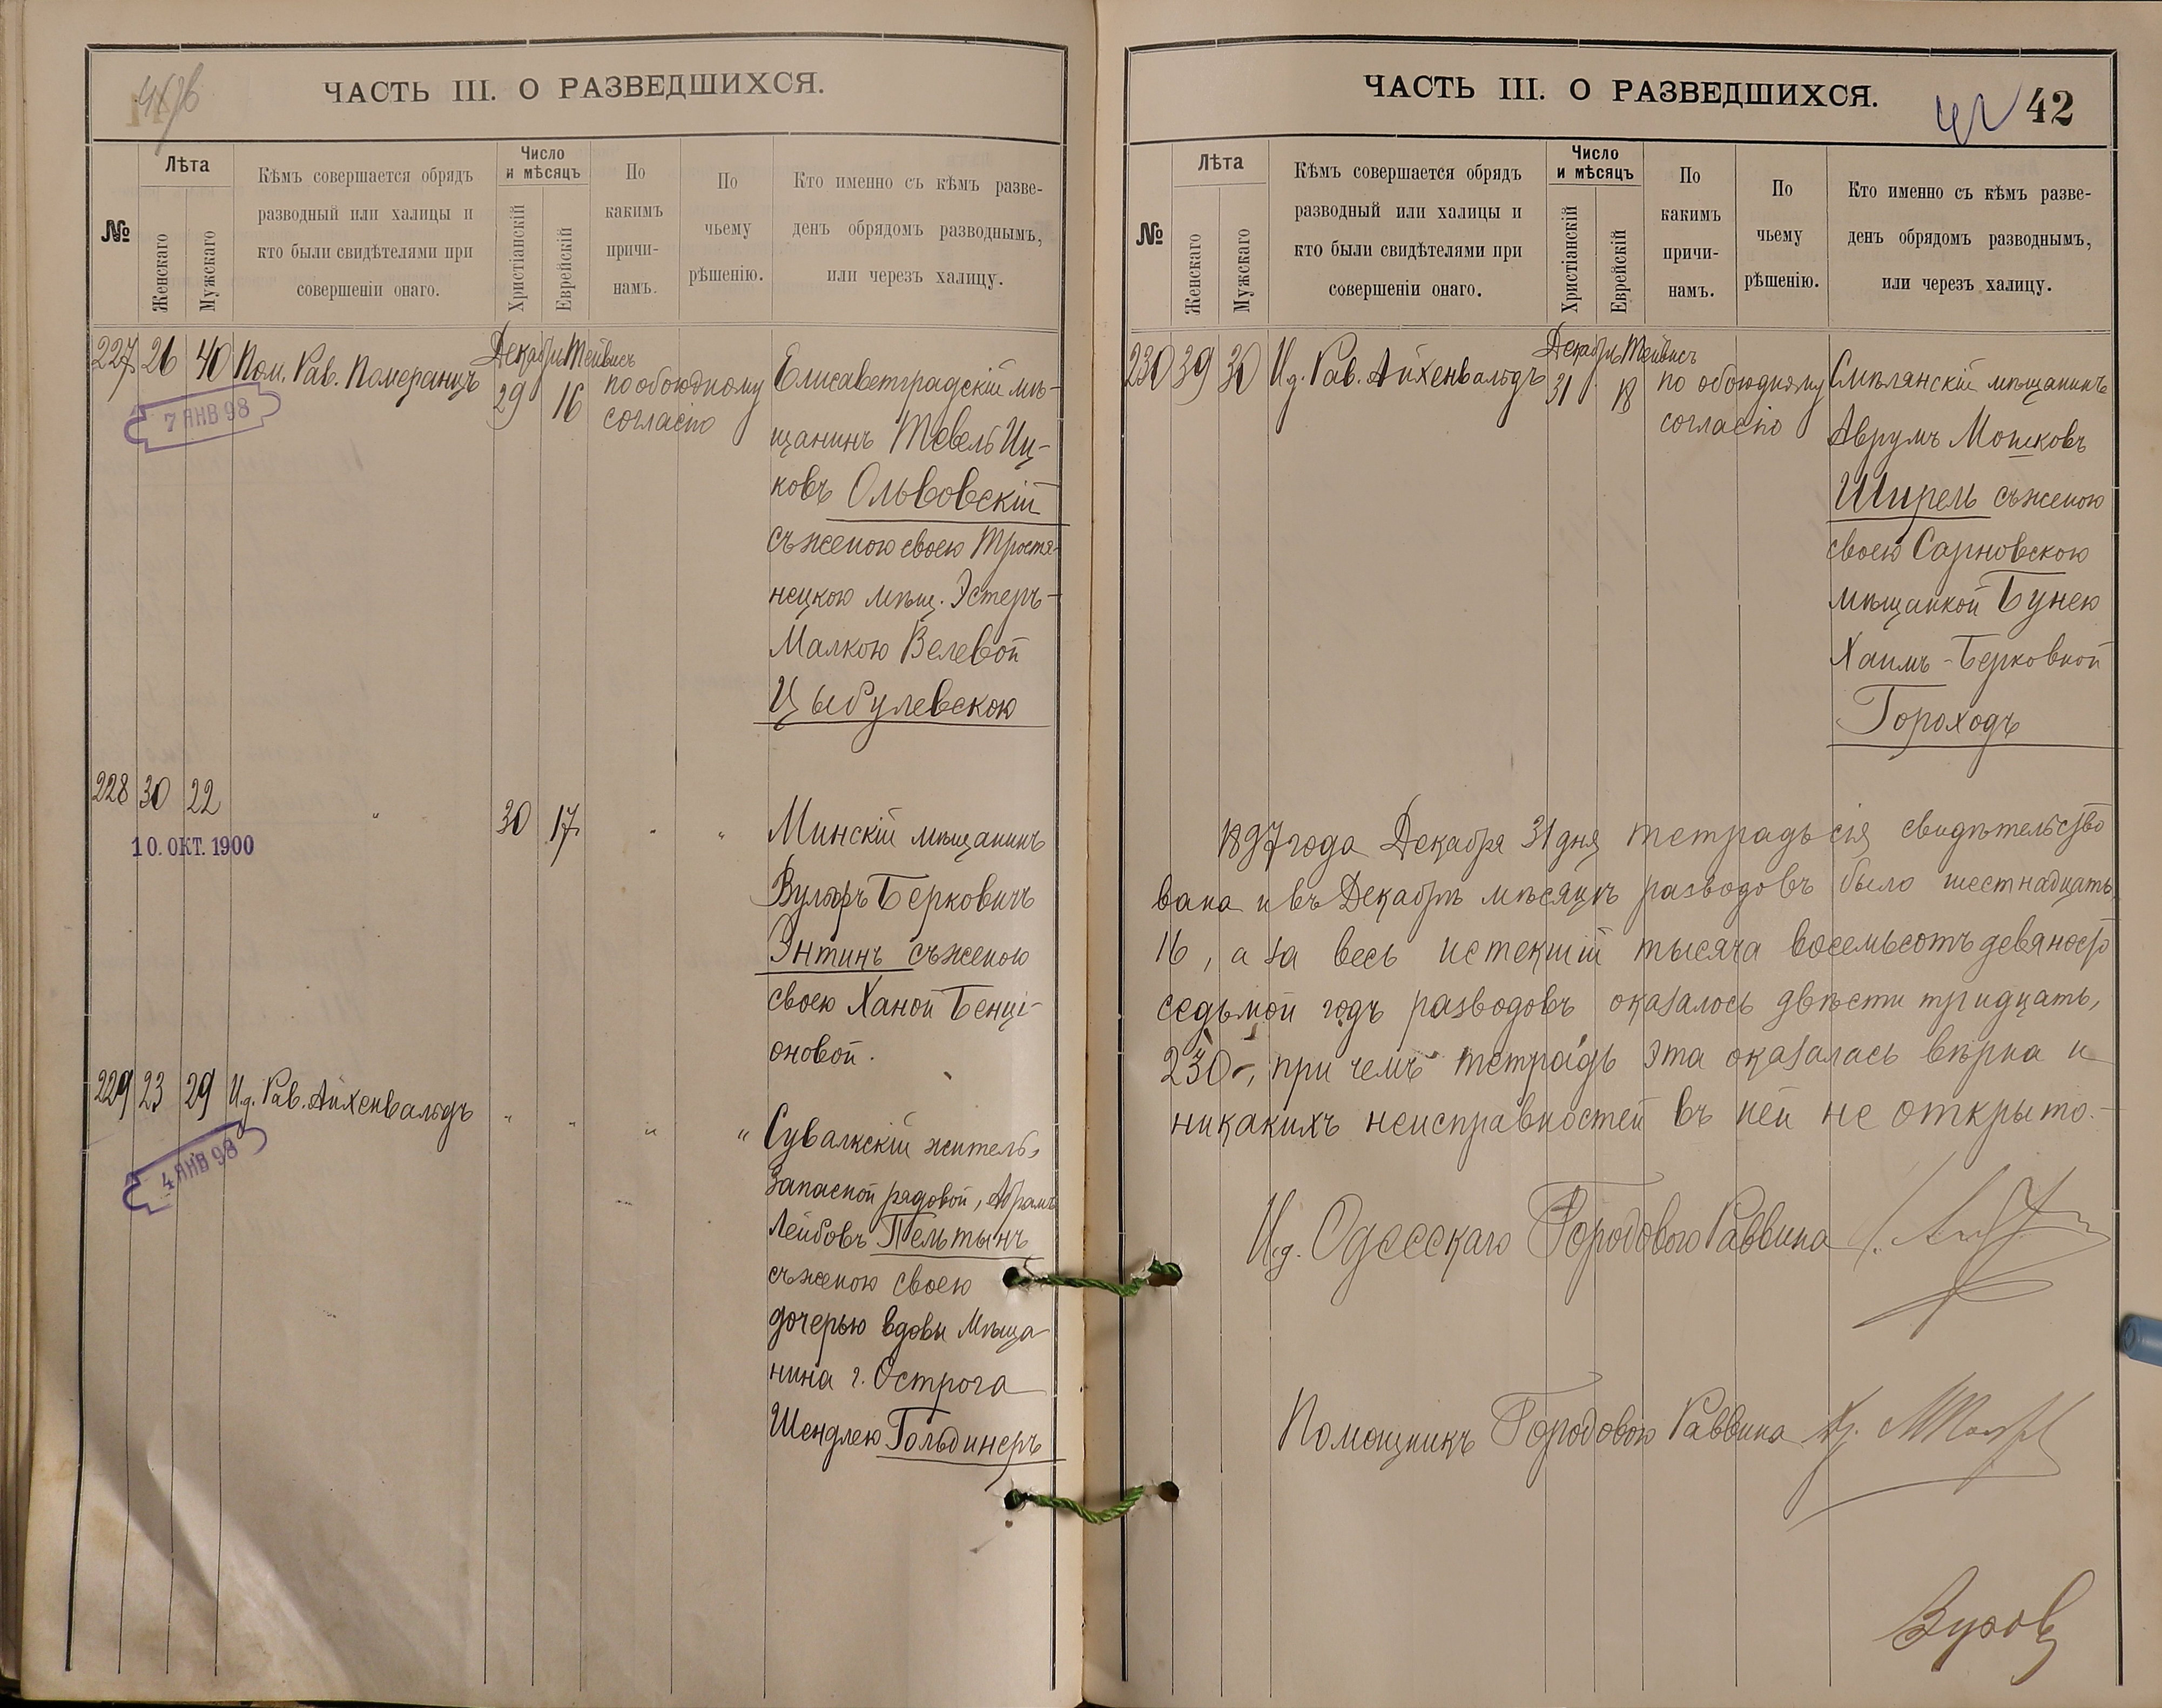 ЧАСТЬ III. О РАЗВЕДШИХСЯ.
№
Лѣта
Женскаго
Мужскаго
Кѣмъ совершается обрядъ
разводный или халицы и
кто были свидѣтелями при
совершеніи онаго.
Число
и мѣсяцъ
Христіанскій
Еврейскій
По
какимъ
причи-
намъ.
По
чьему
рѣшенію.
Кто именно съ кѣмъ разве-
денъ обрядомъ разводнымъ,
или черезъ халицу.
227 26 40 Пом. Рав. Померанцъ
7 ЯНВ 98
Декабрь Тейвисъ
29 16
по обоюдному
согласію
Елисаветградскій мѣ-
щанинъ Тевель Иц-
ковъ Ольвовскій
съ женою своею Тростя-
нецкою мѣщ. Эстеръ-
Малкою Велевой
Цыбулевскою
228 30 22 " 30 17 " "
10. ОКТ. 1900
Минскій мѣщанинъ
Вульфъ Берковичъ
Энтинъ съ женою
своею Ханой Бенці-
оновой.
229 23 29 И.д. Рав. Айхенвальдъ " " " "
4 ЯНВ 98
Сувалкскій житель,
запасной рядовой, Абрамъ
Лейбовъ Пельтынъ
съ женою своею
дочерью вдовы мѣща
нина г. Острога
Шендлею Гольдинеръ
ЧАСТЬ III. О РАЗВЕДШИХСЯ.
42 42
№
Лѣта
Женскаго
Мужскаго
Кѣмъ совершается обрядъ
разводный или халицы и
кто были свидѣтелями при
совершеніи онаго.
Число
и мѣсяцъ
Христіанскій
Еврейскій
По
какимъ
причи-
намъ.
По
чьему
рѣшенію.
Кто именно съ кѣмъ разве-
денъ обрядомъ разводнымъ,
или черезъ халицу.
230 39 30 И.д. Рав. Айхенвальдъ
Декабрь Тейвисъ
31 18
по обоюдному
согласію
Смѣлянскій мѣщанинъ
Аврумъ Мошковъ
Ширель съ женою
своею Сарновскою
мѣщанкой Бунею
Хаимъ-Берковной
Гороходъ
1897 года Декабря 31 дня тетрадь сія свидѣтельство
вана и въ Декабрѣ мѣсяцѣ разводовъ было шестнадцать
16, а за весь истекшій тысяча восемьсотъ девяносто
седьмой годъ разводовъ оказалось двѣсти тридцать,
230-, при чемъ тетрадь эта оказалась вѣрна и
никакихъ неисправностей въ ней не открыто.-
И.д. Одесскаго Городового Раввина
Помощникъ Городового Раввина